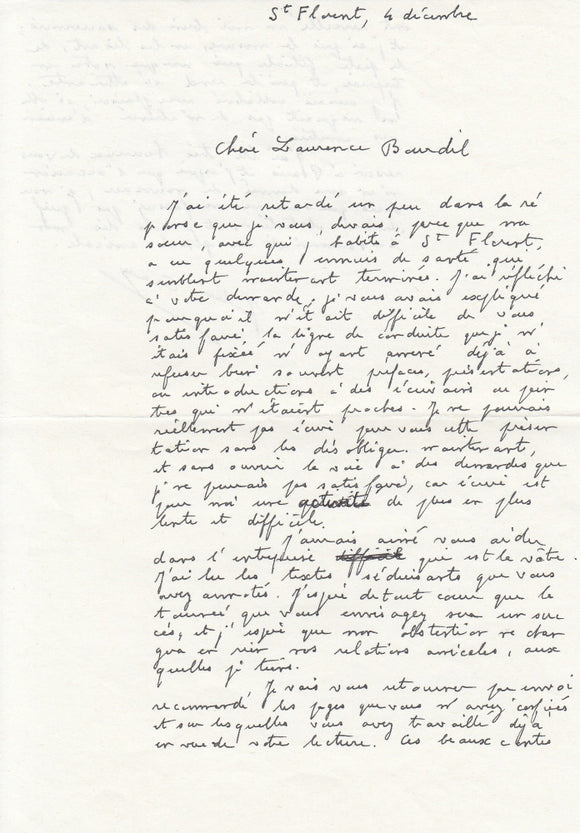 St Florent, 4 décembre
Chère Laurence Bourdil
J'ai été retardé un peu dans la ré
ponse que je vous devais, parce que ma
sœur, avec qui j'habite à St Florent,
a eu quelques ennuis de santé que
semblent maintenant terminés. J'ai réfléchi
à votre demande ; je vous avais expliqué
pourquoi il m'était difficile de vous
satisfaire, la ligne de conduite que je m'
étais fixée m'ayant amené déjà à
refuser bien souvent préfaces, présentations,
ou introductions à des écrivains ou pein
tres qui m'étaient proches. Je ne pouvais
réellement pas écrire pour vous cette présen
tation sans les désobliger maintenant,
et sans ouvrir la voie à des demandes que
je ne pourrais pas satisfaire, car écrire est
pour moi une activité de plus en plus
lente et difficile.
J'aurais aimé vous aider
dans l'entreprise qui est la vôtre.
J'ai lu les textes séduisants que vous
avez annotés. J'espère de tout cœur que la
tournée que vous envisagez sera un suc
cès, et j'espère que mon abstention ne chan
gera en rien nos relations amicales, aux
quelles je tiens.
Je vais vous retourner par envoi
recommandé les pages que vous m'aviez confiées
et sur lesquelles vous avez travaillé déjà
en vue de votre lecture. Ces beaux contes